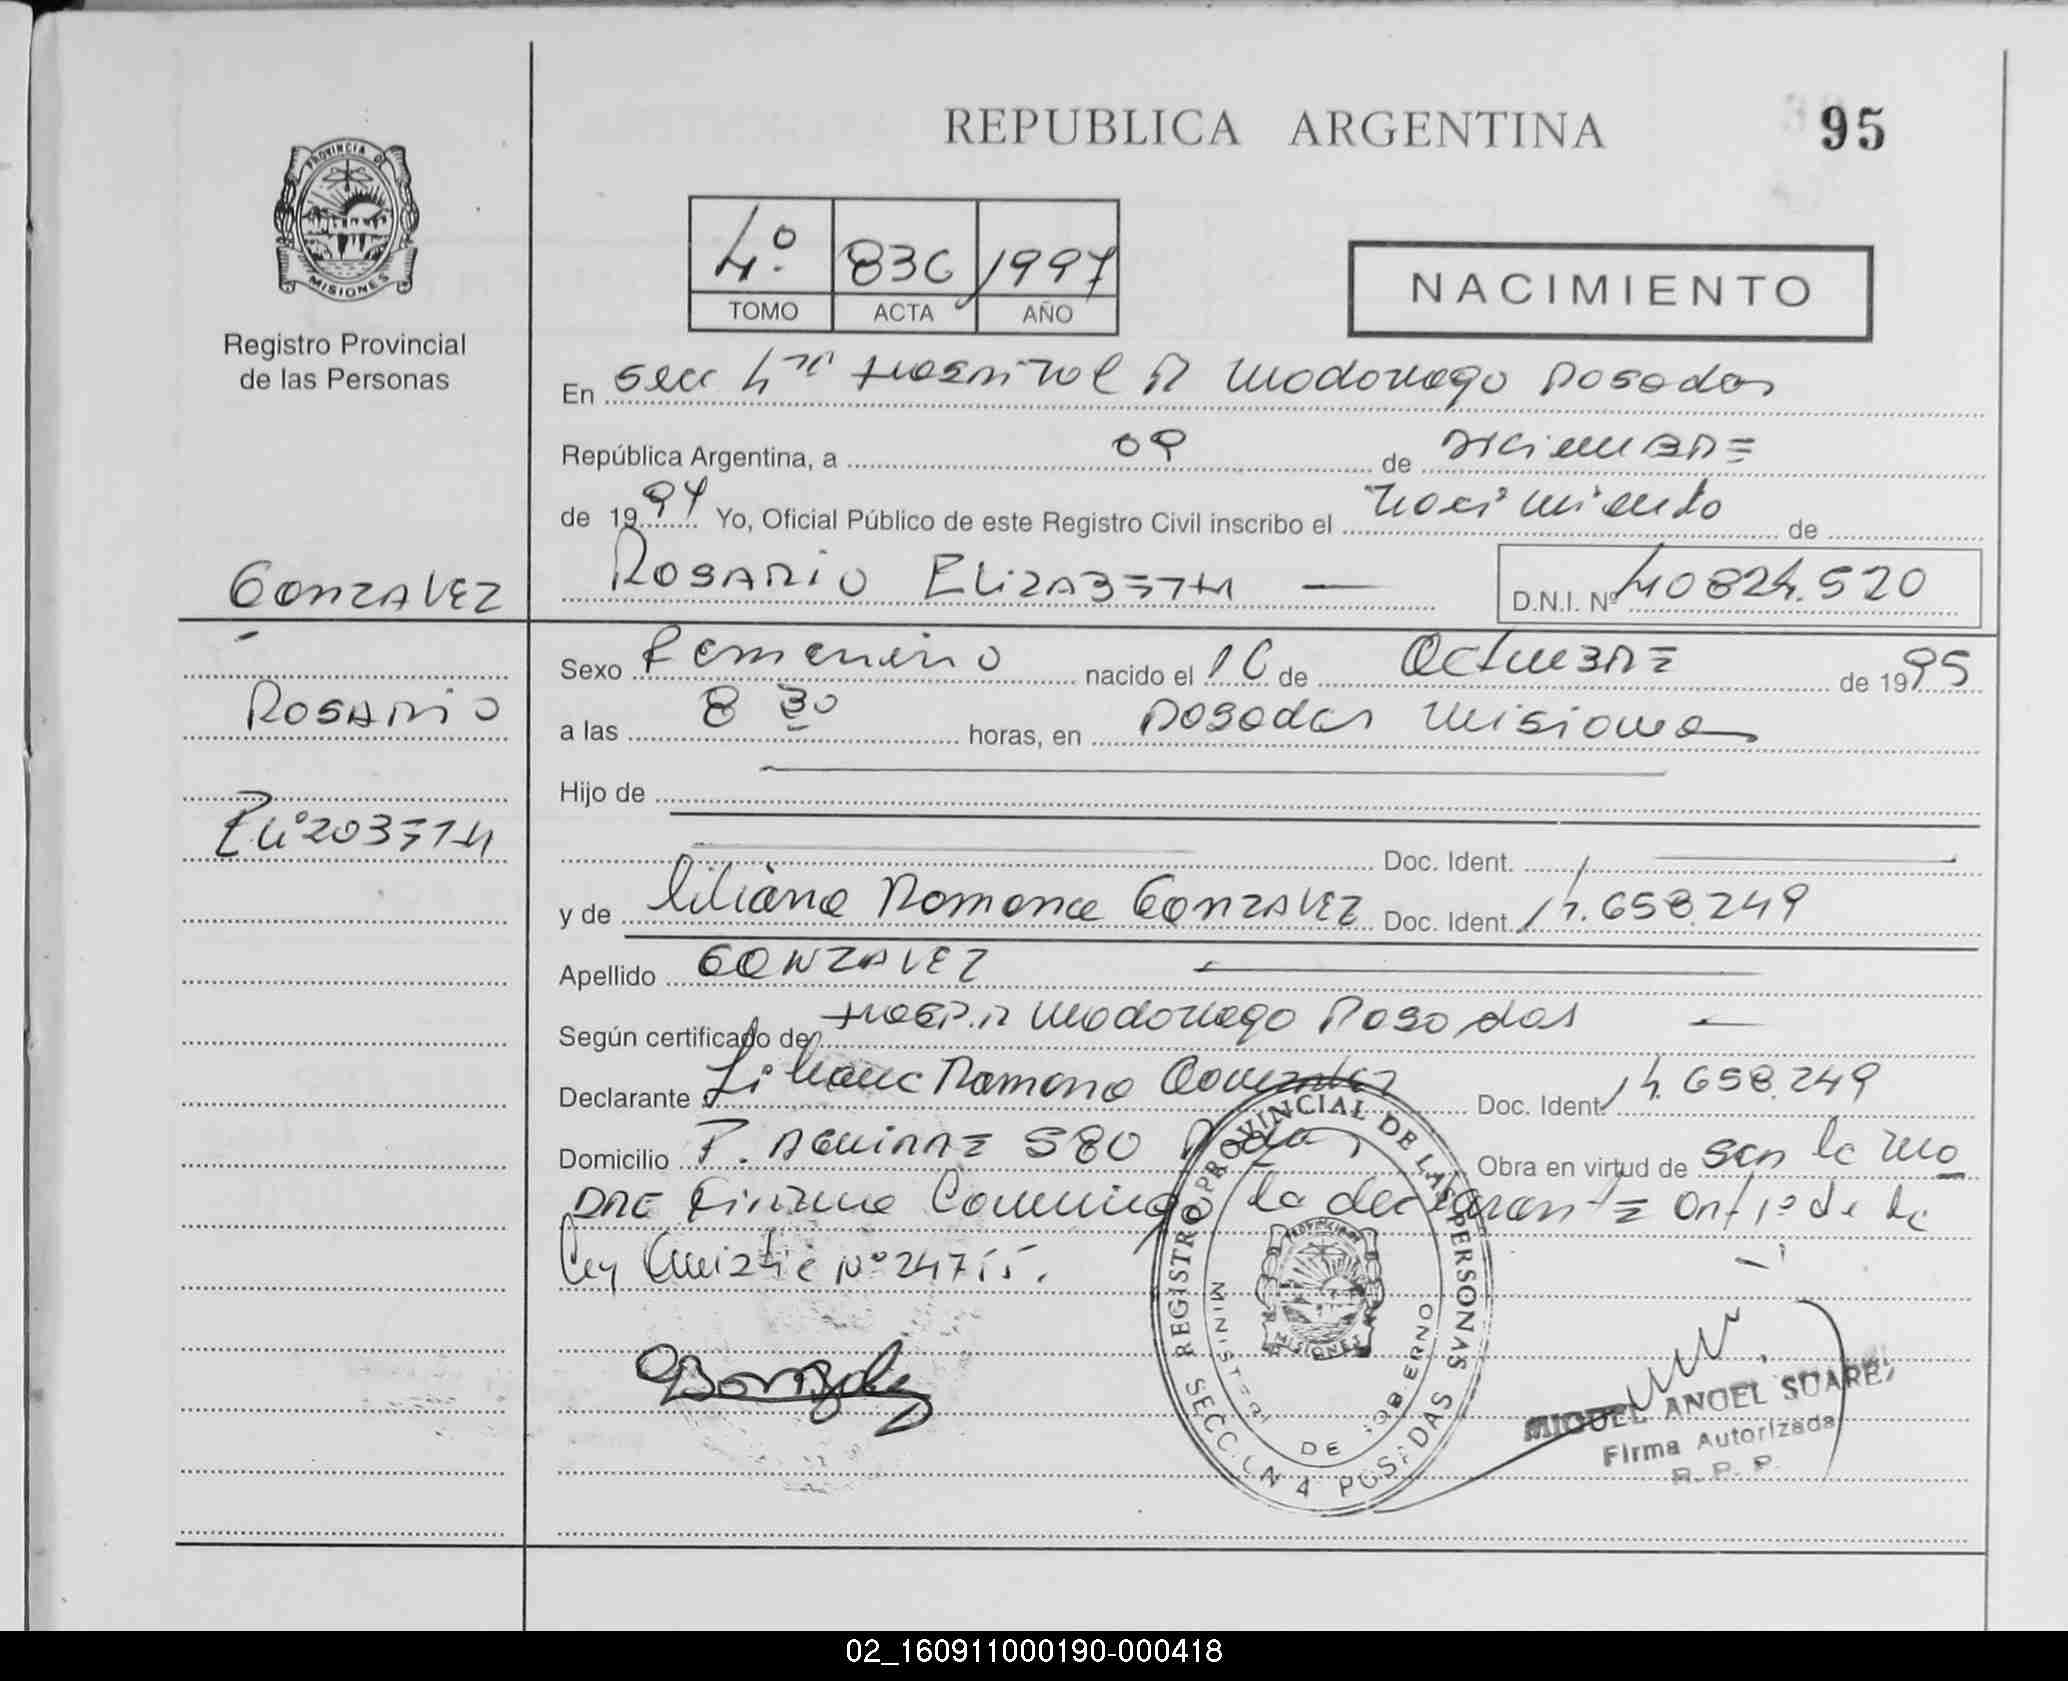 REPUBLICA ARGENTINA
95
PROVINCIA DE
MISIONES
Registro Provincial
de las Personas
4º 836 1997
TOMO ACTA AÑO
NACIMIENTO
En Secc 4ta Hospital R Madariaga Posadas
República Argentina, a 09 de Diciembre
de 1997 Yo, Oficial Público de este Registro Civil inscribo el nacimiento de
GONZALEZ
ROSARIO ELIZABETH — D.N.I. Nº 40824.520
ROSARIO
ELIZABETH
Sexo Femenino nacido el 16 de Octubre de 1995
a las 8 30 horas, en Posadas Misiones
Hijo de
Doc. Ident.
y de Liliana Ramona GONZALEZ Doc. Ident. 17.658.249
Apellido GONZALEZ
Según certificado de Hosp. R Madariaga Posadas —
Declarante Liliana Ramona Gonzalez Doc. Ident 17.658.249
Domicilio P. Aguirre 580 Pdas, Obra en virtud de ser la ma
dre Firma Conmigo la declarante Art 1º de la
Ley Nº 24755.
Gonzalez
REGISTRO PROVINCIAL DE LAS PERSONAS
SECCION 4 POSADAS
MINISTERIO DE GOBIERNO
MISIONES
MIGUEL ANGEL SUAREZ
Firma Autorizada
R. P. P.
02_160911000190-000418